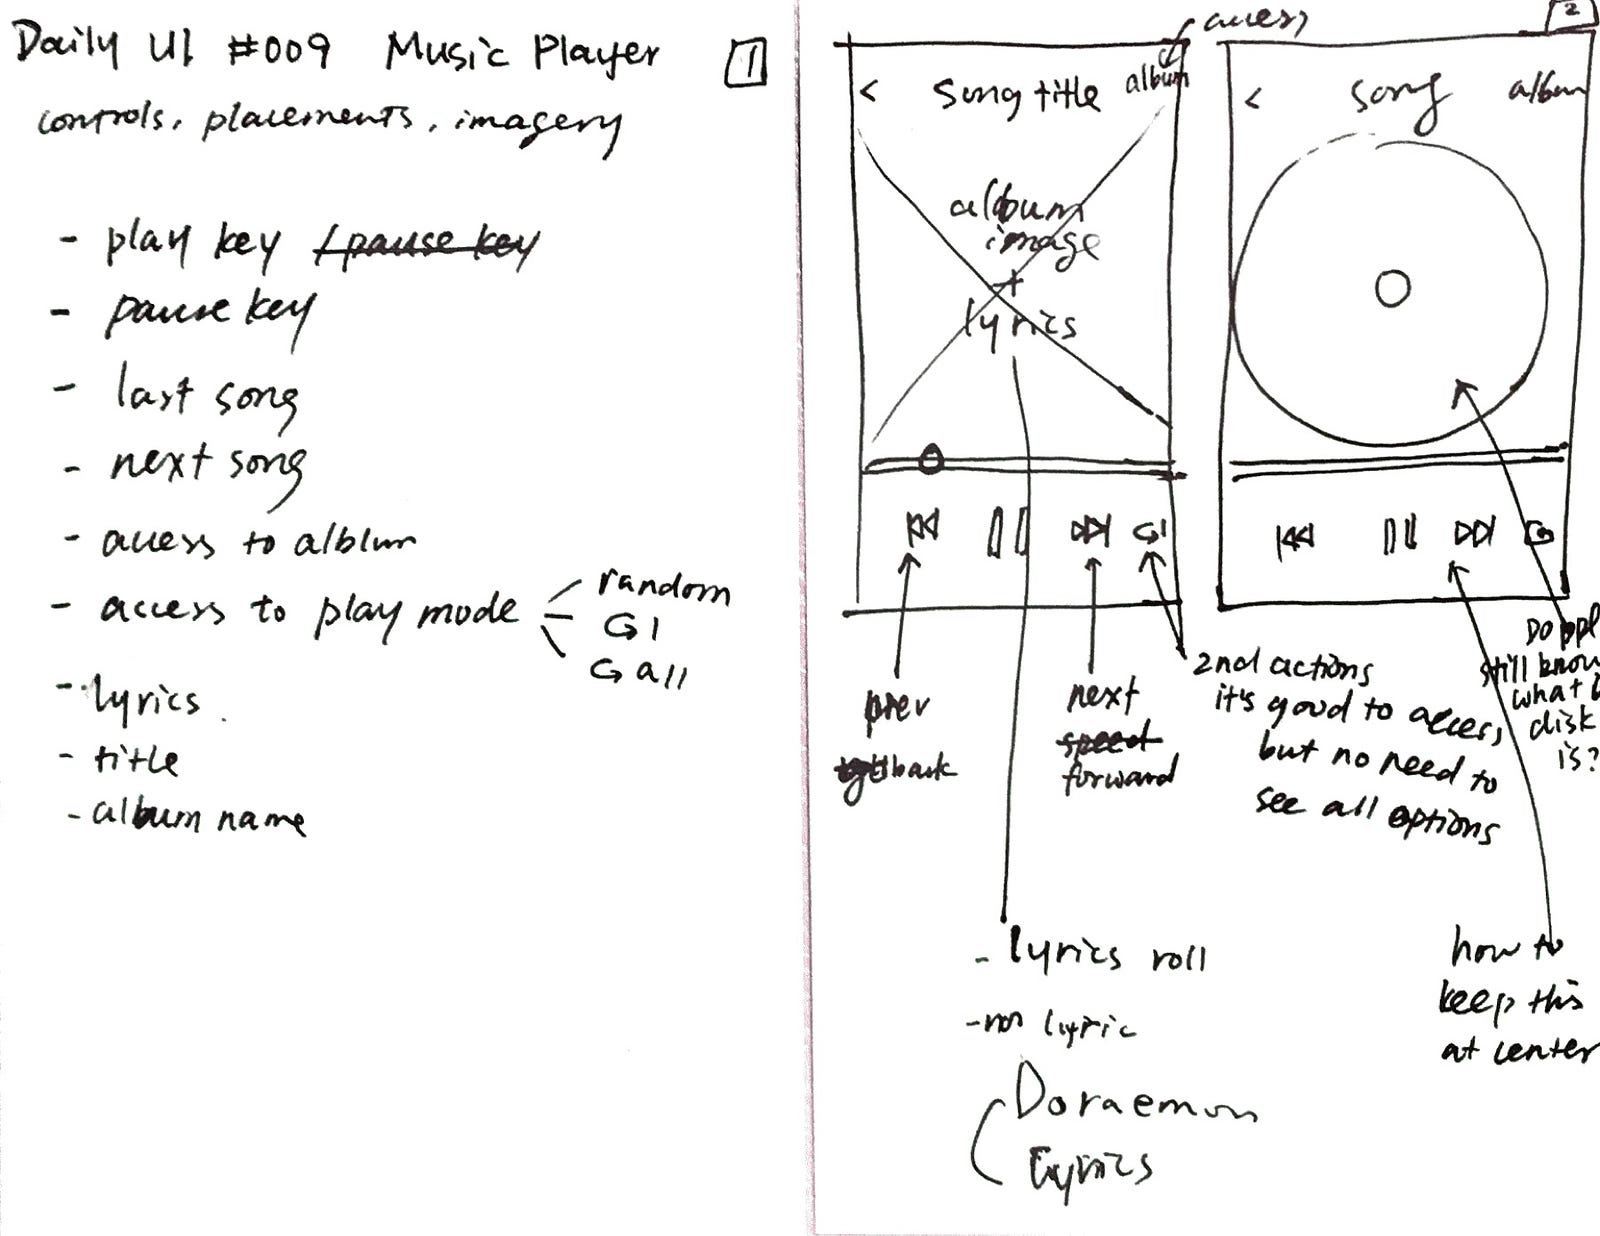 Daily UI #009 Music Player
1
controls, placements, imagery
- play key /pause key
- pause key
- last song
- next song
- access to alblum
- access to play mode
random
1
all
- lyrics
- title
- album name
2
access
< Song title album
album
image
+
lyrics
1
prev
back
next
speed
forward
2nd actions
it's good to access,
but no need to
see all options
- lyrics roll
- lyric
Doraemon
Lyrics
< song album
Do ppl
still know
what
disk
is?
how to
keep this
at center